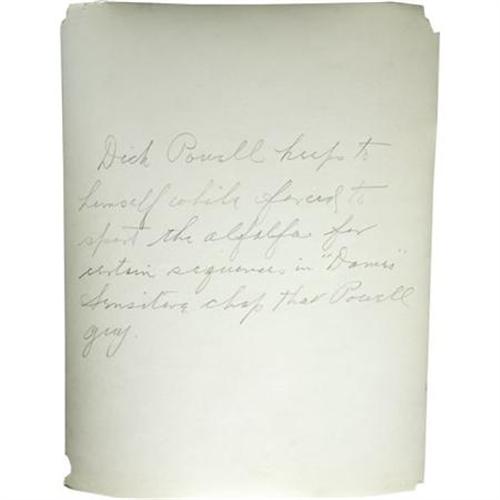 Dick Powell keeps to
himself while forced to
sport the alfalfa for
certain sequences in "Dames"
Sensitive chap that Powell
guy.